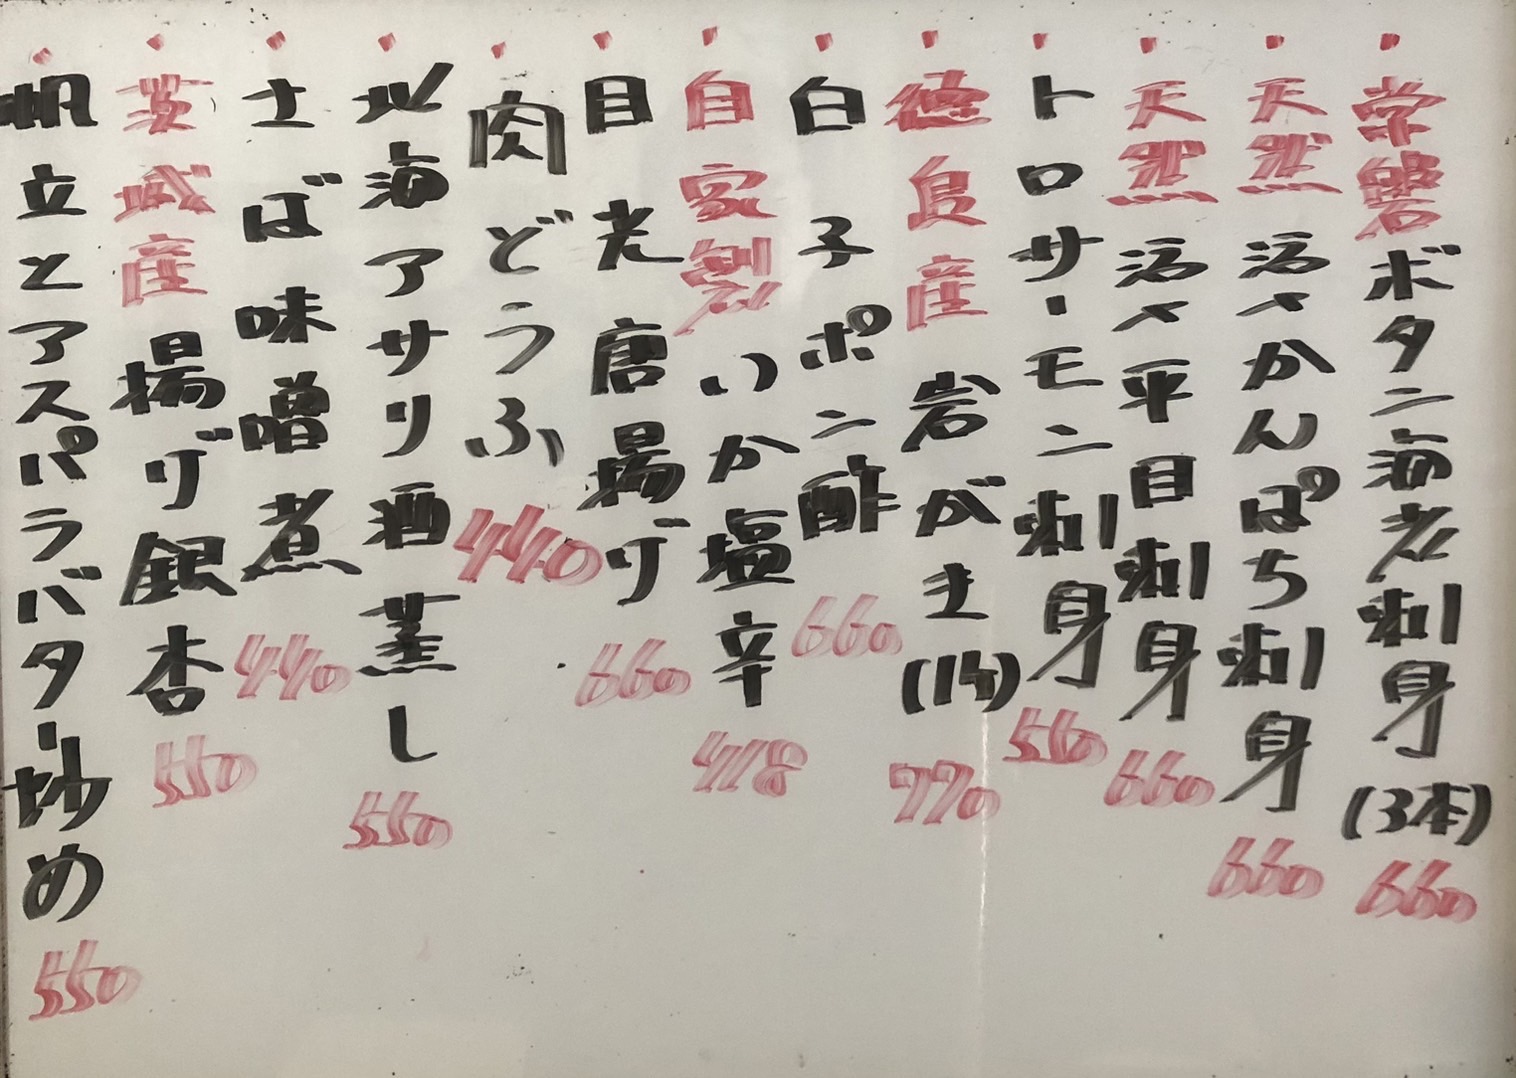 常磐ボタン海老刺身(3本)660
天然活〆かんぱち刺身660
天然活〆平目刺身660
トロサーモン刺身550
徳島産岩がき(1ケ)770
白子ポン酢660
自家製いか塩辛418
目光唐揚げ660
肉どうふ440
北海アサリ酒蒸し550
さば味噌煮440
茨城産揚げ銀杏550
帆立とアスパラバター炒め550